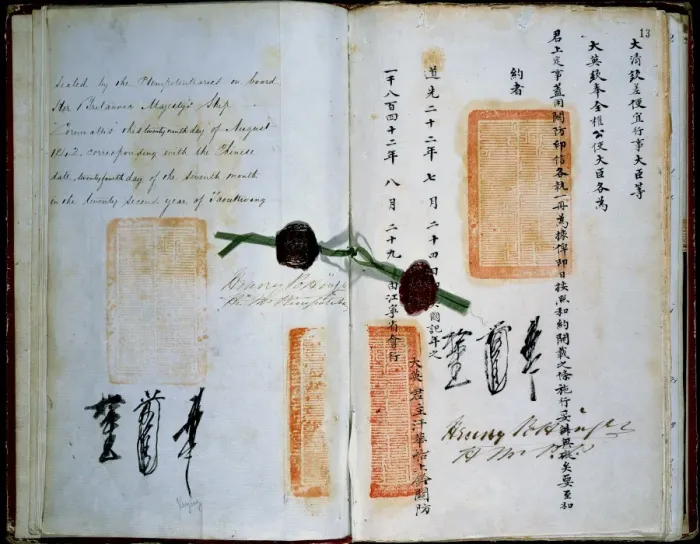 Sealed by the Plenipotentiaries on board
Her Britannic Majesty's Ship
Cornwallis this twenty ninth day of August
1842, corresponding with the Chinese
date, twenty fourth day of the seventh month
in the twenty second year of Taoukwang
Henry Pottinger
13
大清欽差便宜行事大臣等
大英欽奉全權公使大臣各為
君上定事蓋用關防印信各執一冊為據俾即日按照和約開載之條施行妥辦無礙矣要至和
約者
道光二十二年 七月二十四日 國記年之
一千八百四十二年 八月二十九 由江寧省會行
大英君主汗華船上鈐關防
Henry Pottinger